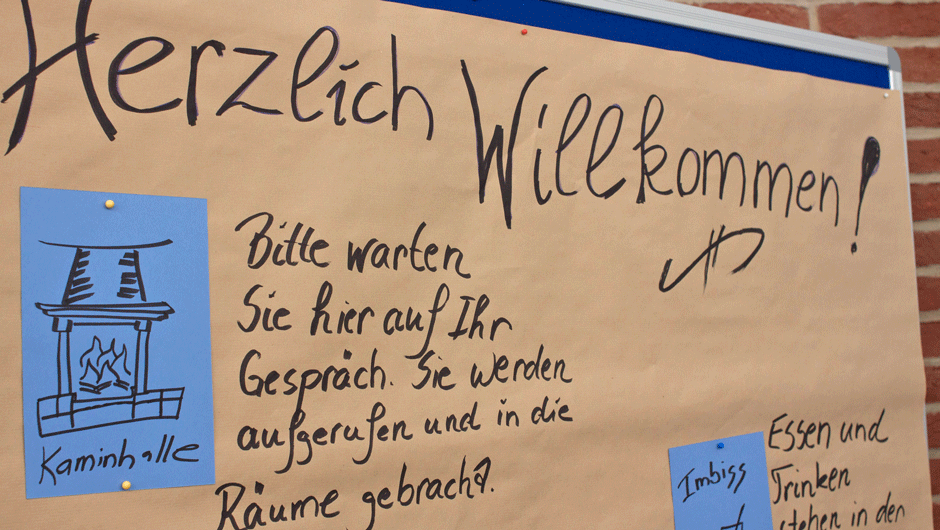 Herzlich Willkommen!
Kaminhalle
Bitte warten
Sie hier auf Ihr
Gespräch. Sie werden
aufgerufen und in die
Räume gebracht.
Imbiss
Essen und
Trinken
stehen in den